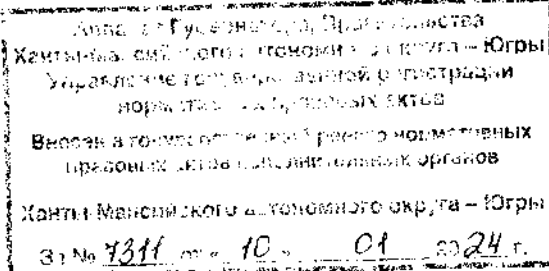 Аппарат Губернатора, Правительства
Ханты-Мансийского автономного округа – Югры
Управление государственной регистрации
нормативных правовых актов
Внесен в государственный реестр нормативных
правовых актов исполнительных органов
Ханты-Мансийского автономного округа – Югры
За № 7311 от « 10 » 01 2024 г.